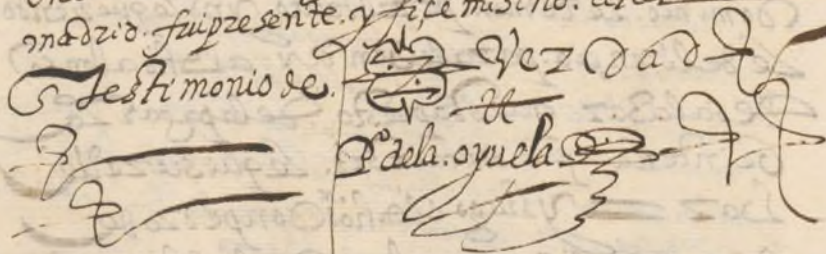 madrid. fui presente. y fiçe mi sino. en
testimonio de. Verdad
P.º dela. oyuela